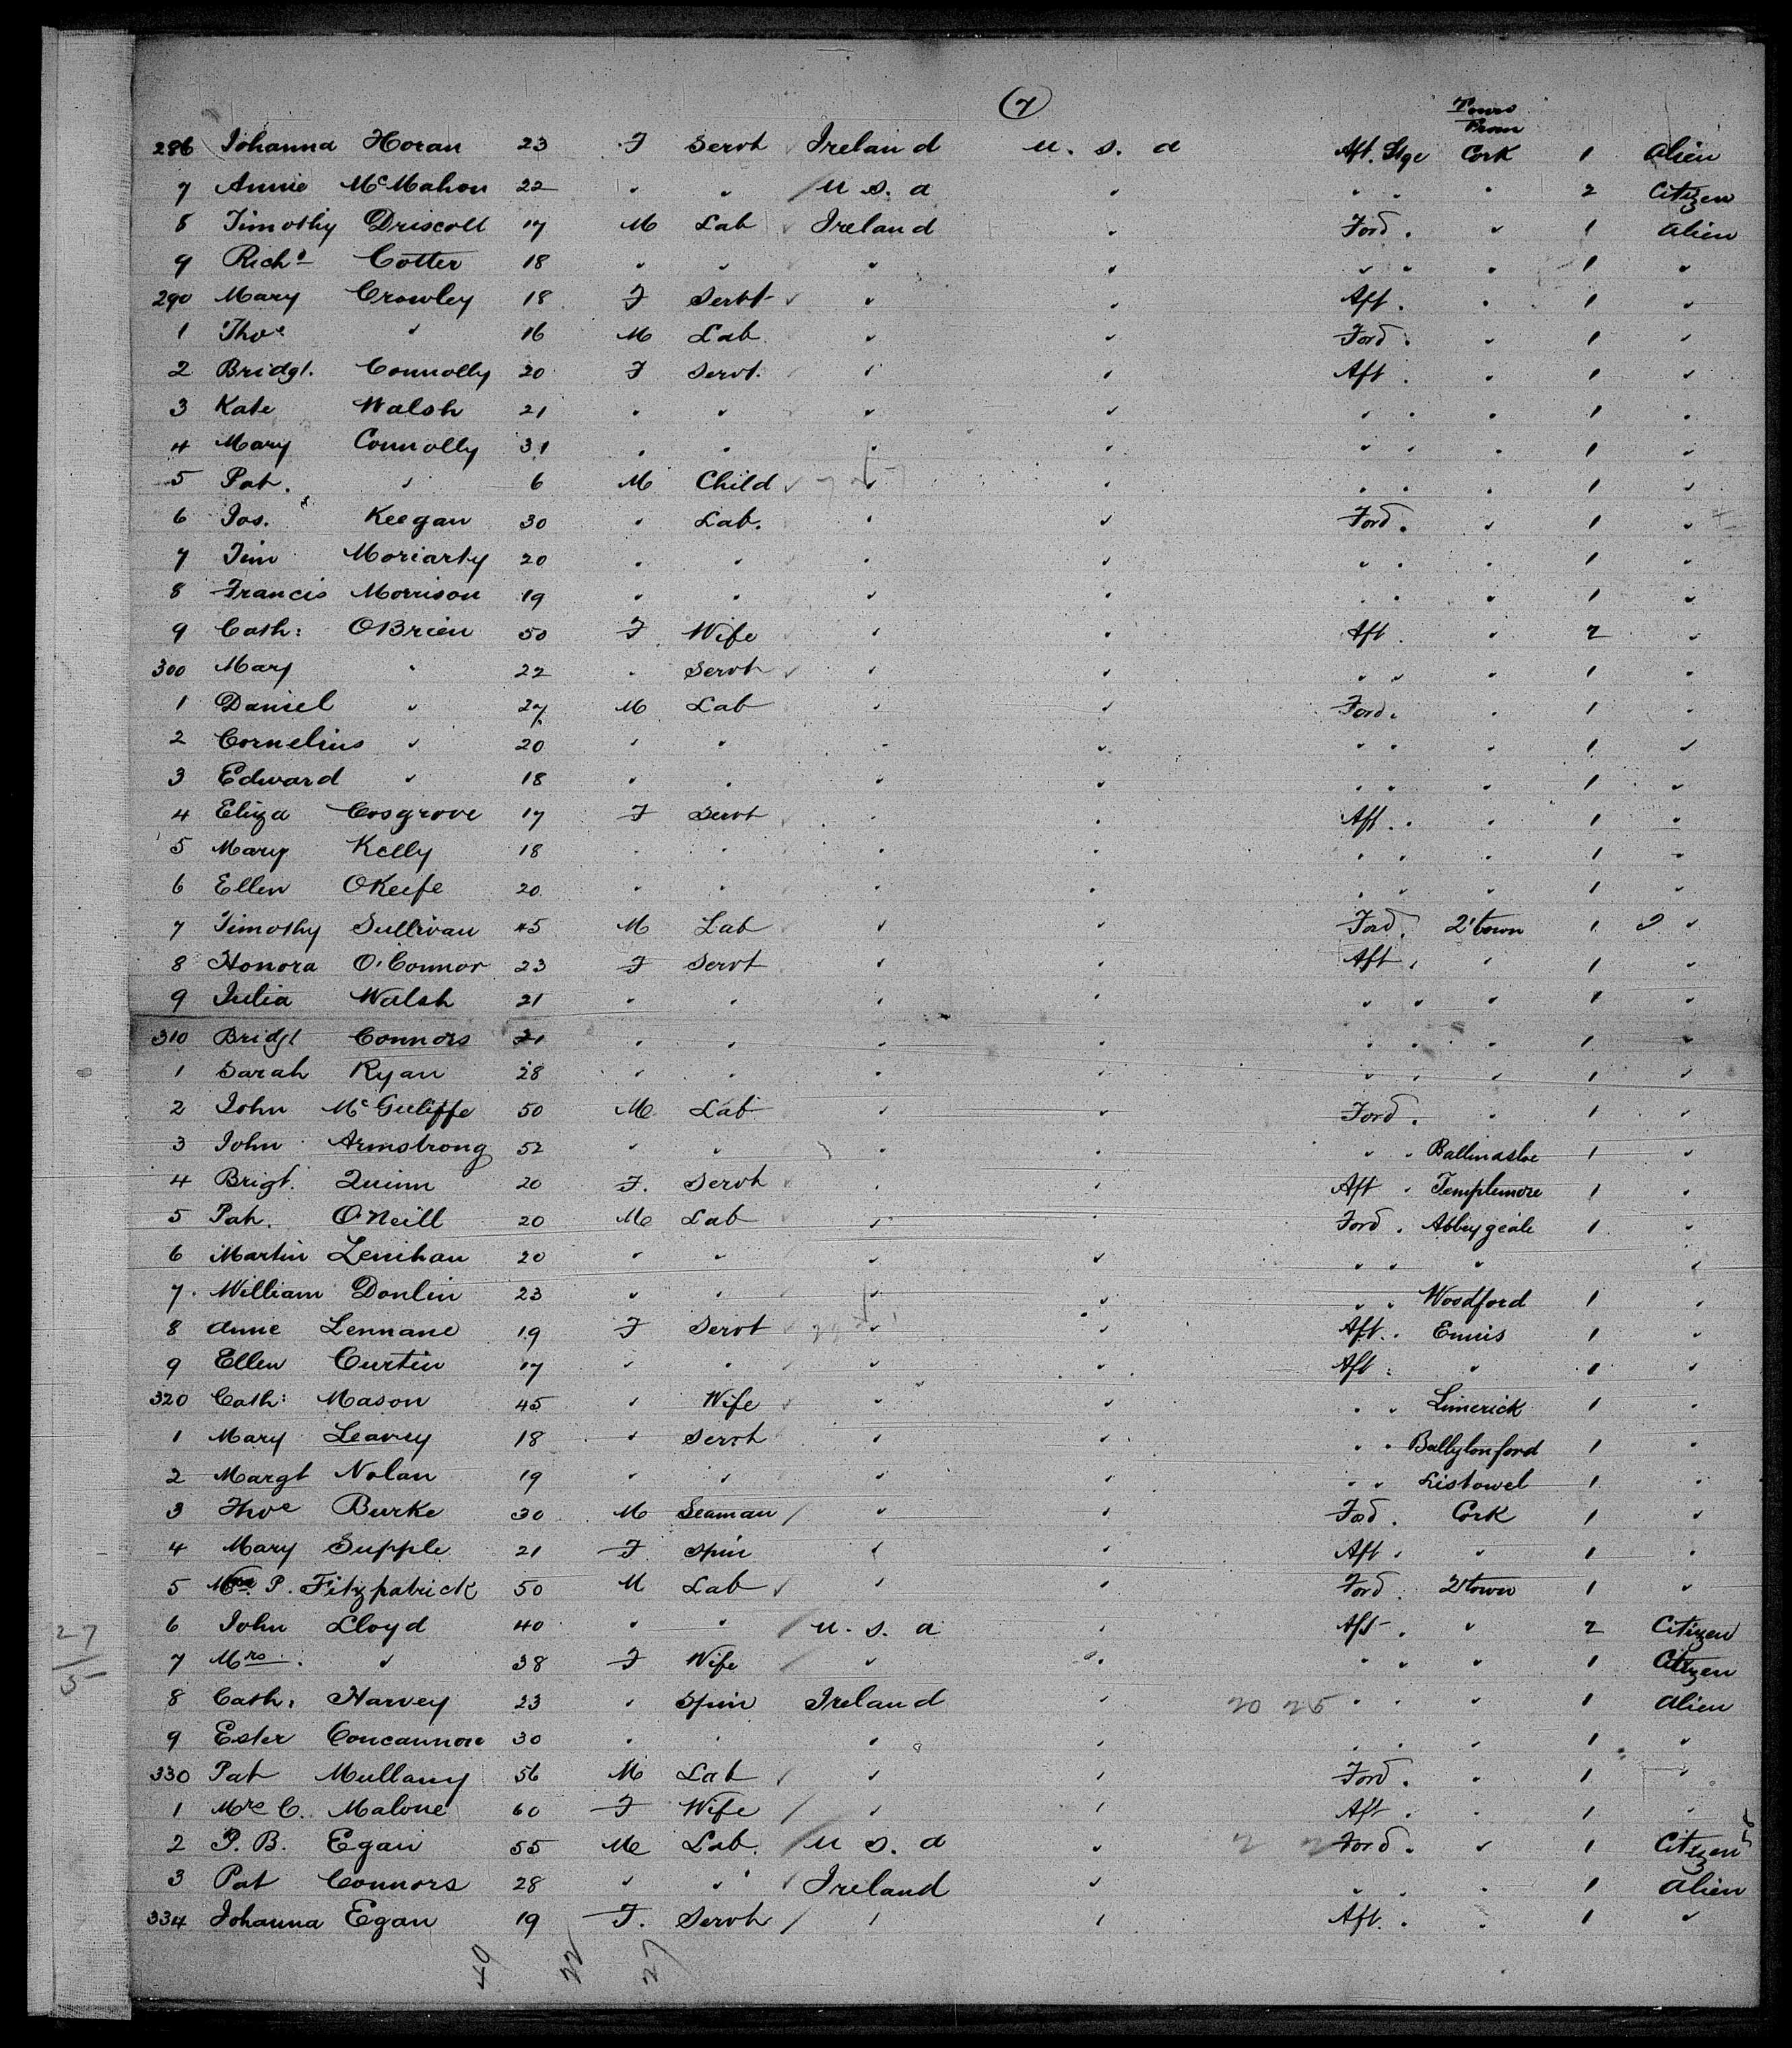 7
Towns
From
286 Johanna Horan 23 F Servt Ireland U. S. A Aft. Stge Cork 1 Alien
7 Annie McMahon 22 " " U S. A " " " " 2 Citizen
8 Timothy Driscoll 17 M Lab Ireland " Ford. " 1 Alien
9 Richd Cotter 18 " " " " " " " 1 "
290 Mary Crowley 18 F Servt " " Aft. " 1 "
1 Thos " 16 M Lab " " Ford. " 1 "
2 Bridgt. Connolly 20 F Servt. " " Aft. " 1 "
3 Kate Walsh 21 " " " " " " " 1 "
4 Mary Connolly 31 " " " " " " " 1 "
5 Pat. " 6 M Child " " " " " 1 "
6 Jos. Keegan 30 " Lab. " " Ford. " 1 "
7 Jim Moriarty 20 " " " " " " " 1 "
8 Francis Morrison 19 " " " " " " " 1 "
9 Cath: OBrien 50 F Wife " " Aft. " 2 "
300 Mary " 22 " Servt " " " " " 1 "
1 Daniel " 27 M Lab " " Ford. " 1 "
2 Cornelius " 20 " " " " " " " 1 "
3 Edward " 18 " " " " " " " 1 "
4 Eliza Cosgrove 17 F Servt " " Aft. " " 1 "
5 Mary Kelly 18 " " " " " " " 1 "
6 Ellen OKeefe 20 " " " " " " " 1 "
7 Timothy Sullivan 45 M Lab " " Ford. 2'town 1 "
8 Honora O'Connor 23 F Servt " " Aft. " 1 "
9 Julia Walsh 21 " " " " " " " 1 "
310 Bridgt Connors 21 " " " " " " " 1 "
1 Sarah Ryan 28 " " " " " " " 1 "
2 John McGuliffe 50 M Lab " " Ford. " 1 "
3 John Armstrong 52 " " " " " " Ballinasloe 1 "
4 Brigt. Quinn 20 F. Servt " " Aft " Templemore 1 "
5 Pat. O'Neill 20 M Lab " " Ford. Abbeygeale 1 "
6 Martin Lenihan 20 " " " " " " " "
7. William Donlin 23 " " " " " " Woodford 1 "
8 Anne Lennane 19 F Servt " " Aft. Ennis 1 "
9 Ellen Curtin 17 " " " " Aft. " 1 "
320 Cath: Mason 45 " Wife " " " " Limerick 1 "
1 Mary Leavey 18 " Servt " " " " Ballylonford 1 "
2 Margt Nolan 19 " " " " " " Listowel 1 "
3 Thos Burke 30 M Seaman " " Ford. Cork 1 "
4 Mary Supple 21 F Spin " " Aft. " 1 "
5 P. Fitzpatrick 50 M Lab " " Ford. 2'town 1 "
6 John Lloyd 40 " " U. S. A " Aft. " 2 Citizen
7 Mrs. " 38 F Wife " " " " " 1 Citizen
8 Cath. Harvey 23 " Spin Ireland " 20 25 " " " 1 Alien
9 Ester Concannon 30 " " " " " " " 1 "
330 Pat Mullany 56 M Lab " " Ford. " 1 "
1 Mrs C. Malone 60 F Wife " " Aft. " 1 "
2 P. B. Egan 55 M Lab. U S. A " Ford. " 1 Citizen
3 Pat Connors 28 " " Ireland " " " " 1 Alien
334 Johanna Egan 19 F. Servt " " Aft. " " 1 "
27
5
40 22 27